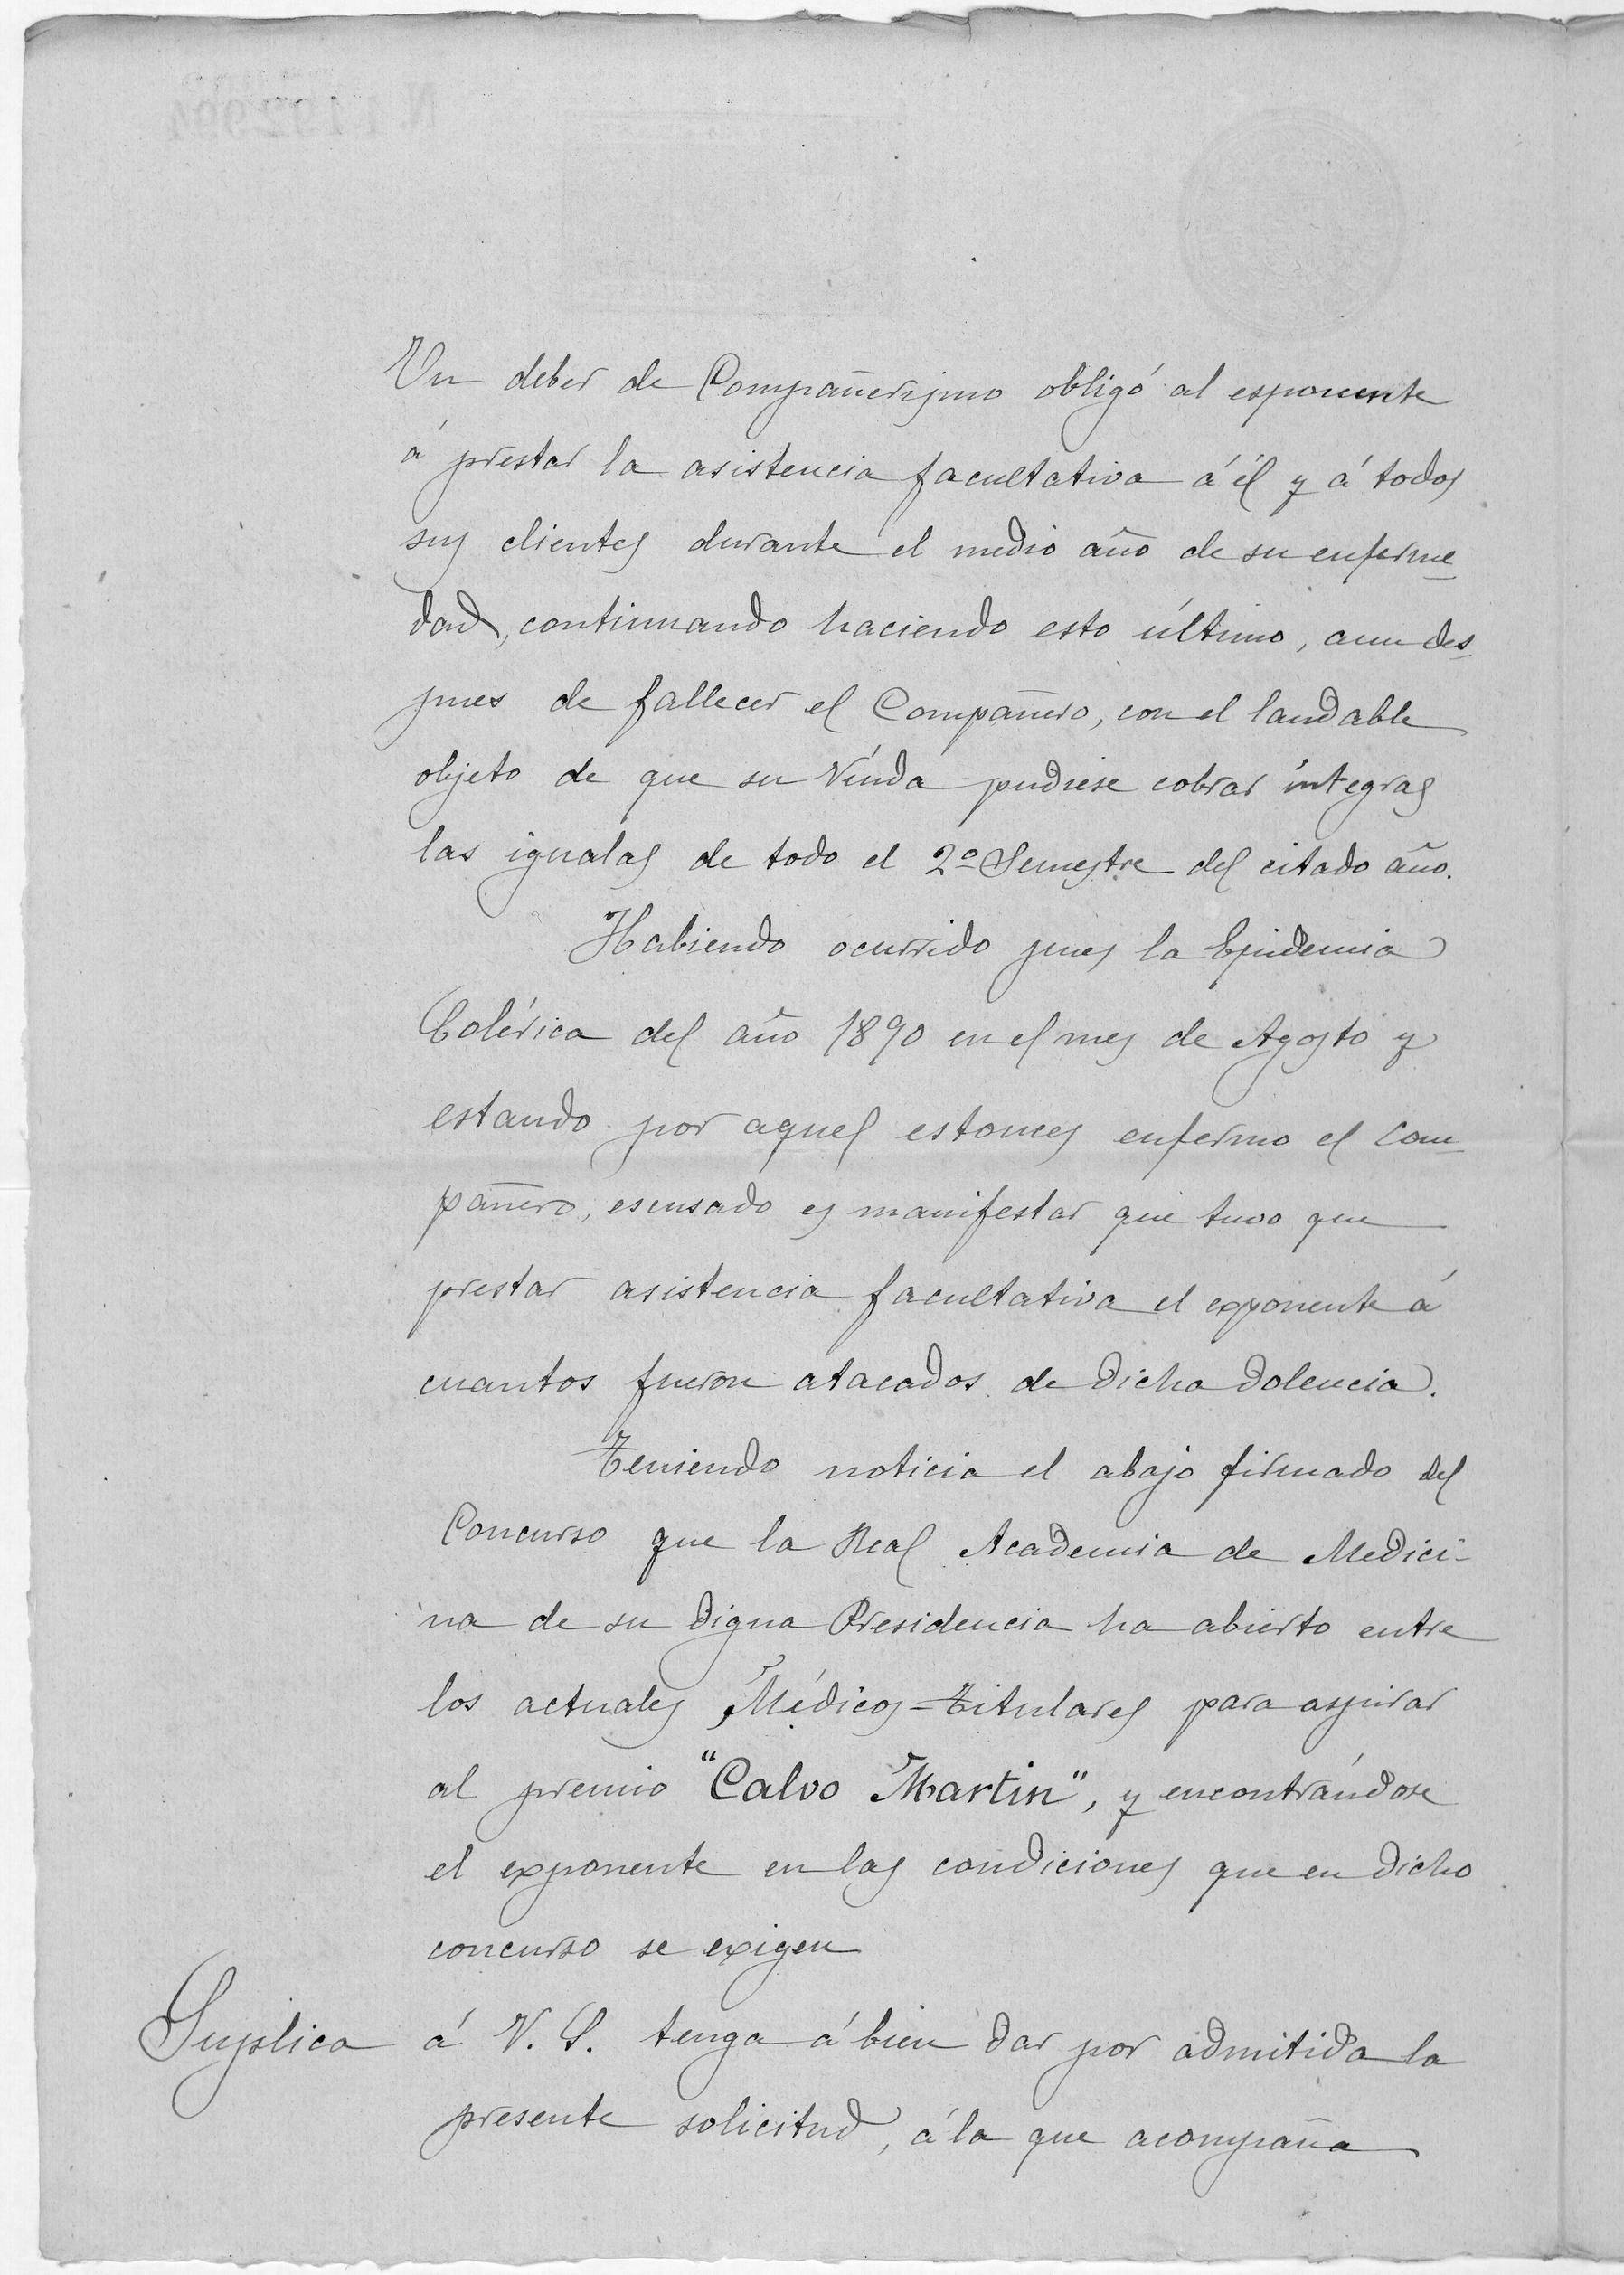 N. 1.192.904
Un deber de Compañerismo obligó al esponente
á prestar la asistencia facultativa á él y á todos
sus clientes durante el medio año de su enferme
dad, continuando haciendo esto último, aun des
pues de fallecer el Compañero, con el laudable
objeto de que su Viuda pudiese cobrar íntegras
las igualas de todo el 2º Semestre del citado año.
Habiendo ocurrido pues la Epidemia
Colérica del año 1890 en el mes de Agosto y
estando por aquel estonces enfermo el com
pañero, escusado es manifestar que tuvo que
prestar asistencia facultativa el exponente á
cuantos fueron atacados de dicha dolencia.
Teniendo noticia el abajo firmado del
Concurso que la Real Academia de Medici-
na de su digna Presidencia ha abierto entre
los actuales Médicos-Titulares para aspirar
al premio "Calvo Martin", y encontrándose
el exponente en las condiciones que en dicho
concurso se exigen
Suplica á V. S. tenga á bien dar por admitida la
presente solicitud, á la que acompaña